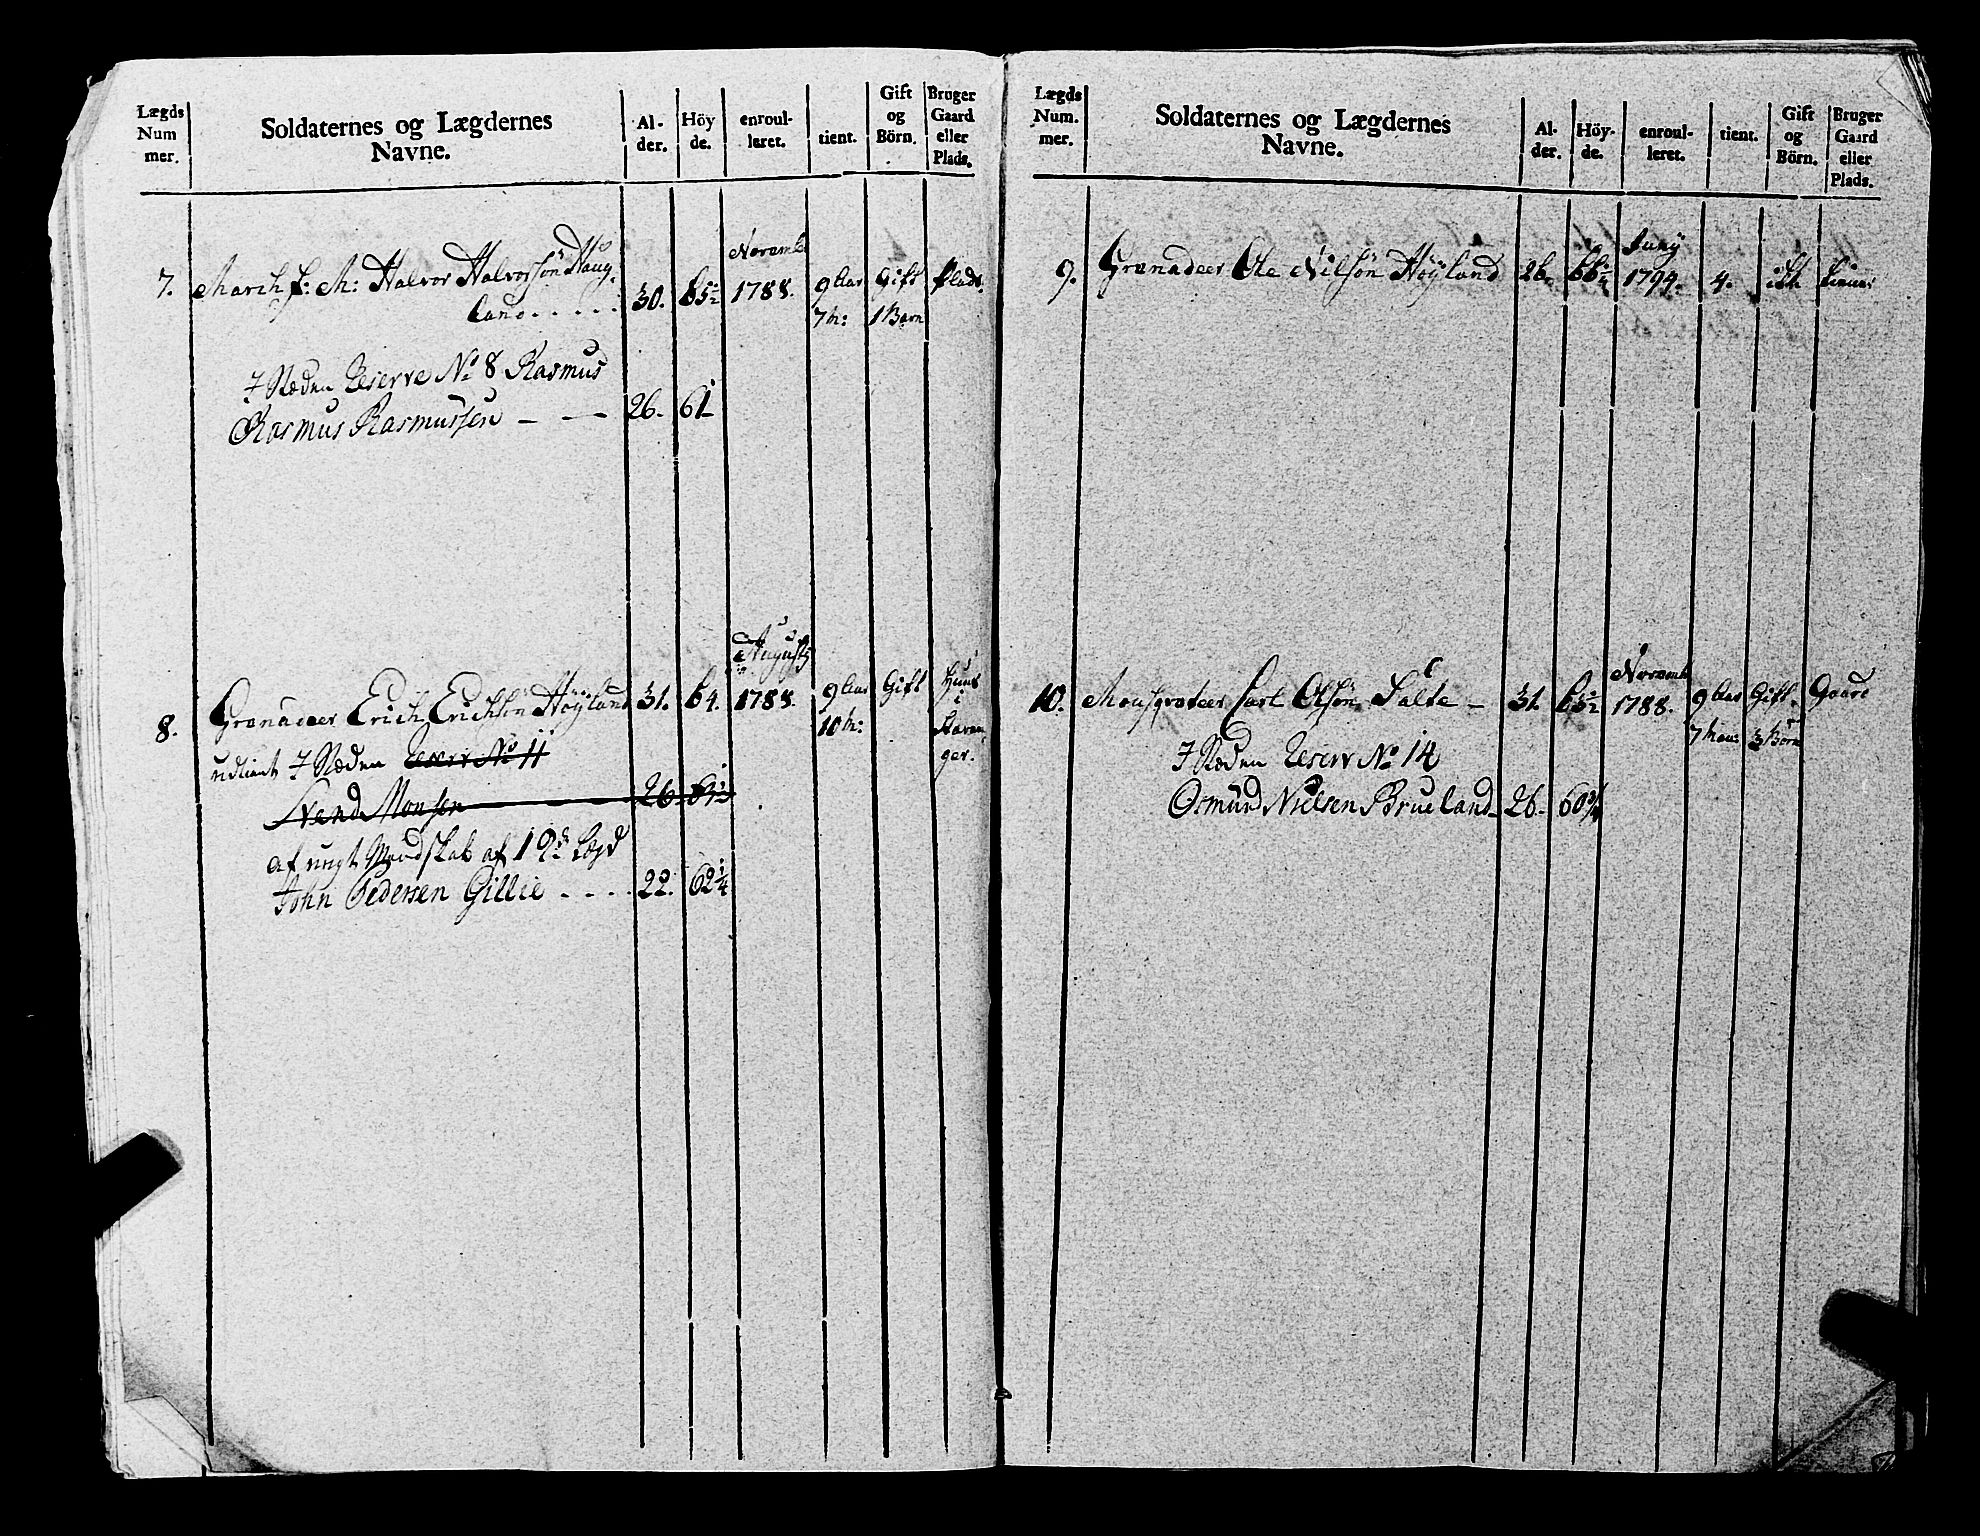 Lægds
Num
mer.
Soldaternes og Lægdernes
Navne.
Al-
der.
Höy
de.
enroul-
leret.
tient.
Gift
og
Börn.
Bruger
Gaard
eller
Plads.
Novemb
7. March f: M: Halvor Halvorsön Haug
land . . . . . 30. 65½ 1788. 9 Aar Gift Plads.
7 M: 1 Barn
I Stæden Reserve No 8 Rasmus
Rasmus Rasmussen — — 26. 61
Augusty
8. Granadeer Erich Erichsön Höyland 31. 64. 1788. 9 Aar Gift Huus
10 M: i
Stavan
ger.
udtient I Stæden Reserv No 11
Svend Monsen 26 61½
af ungt Mandskab af 19de Lægd
John Pedersen Gillie . . . . 22. 62¼
Lægds
Num.
mer.
Soldaternes og Lægdernes
Navne.
Al-
der.
Höy-
de.
enroul-
leret.
tient.
Gift
og
Börn.
Bruger
Gaard
eller
Plads.
Juny
9. Granadeer Ole Nilsön Höyland 26. 1794. 4. tiener
Novemb
10. Mousqvateer Carl Olsön Salte — 31. 65½ 1788. 9 Aar Gift. Gaard
7 Maan: 3 Börn
I Stæden Reserv No 14
Osmund Nielsen Brueland 26. 60¾